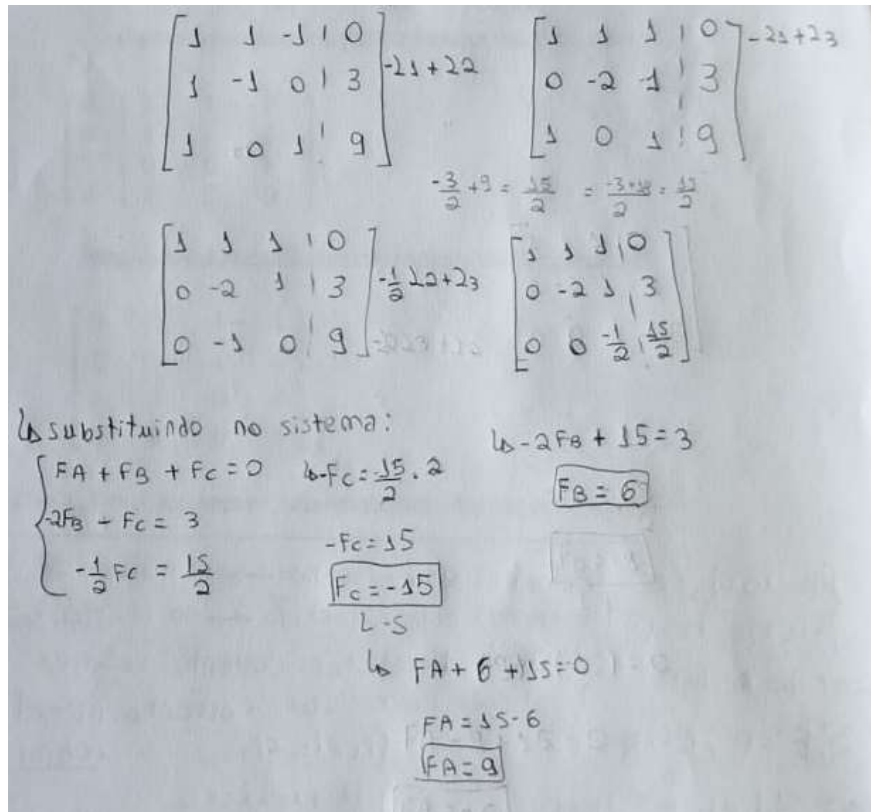 1 1 -1 | 0
1 -1 0 | 3
1 0 1 | 9
-L1+L2
1 1 1 | 0
0 -2 -1 | 3
1 0 1 | 9
-L1+L3
-3/2 + 9 = 15/2 = -3+18/2 = 15/2
1 1 1 | 0
0 -2 1 | 3
0 -1 0 | 9
-1/2 L2+L3
1 1 1 | 0
0 -2 1 | 3
0 0 -1/2 | 15/2
↳ substituindo no sistema:
FA + FB + Fc = 0
-2FB - Fc = 3
-1/2 Fc = 15/2
↳ -Fc = 15/2 . 2
-Fc = 15
Fc = -15
L-S
↳ -2FB + 15 = 3
FB = 6
↳ FA + 6 + 15 = 0
FA = 15 - 6
FA = 9